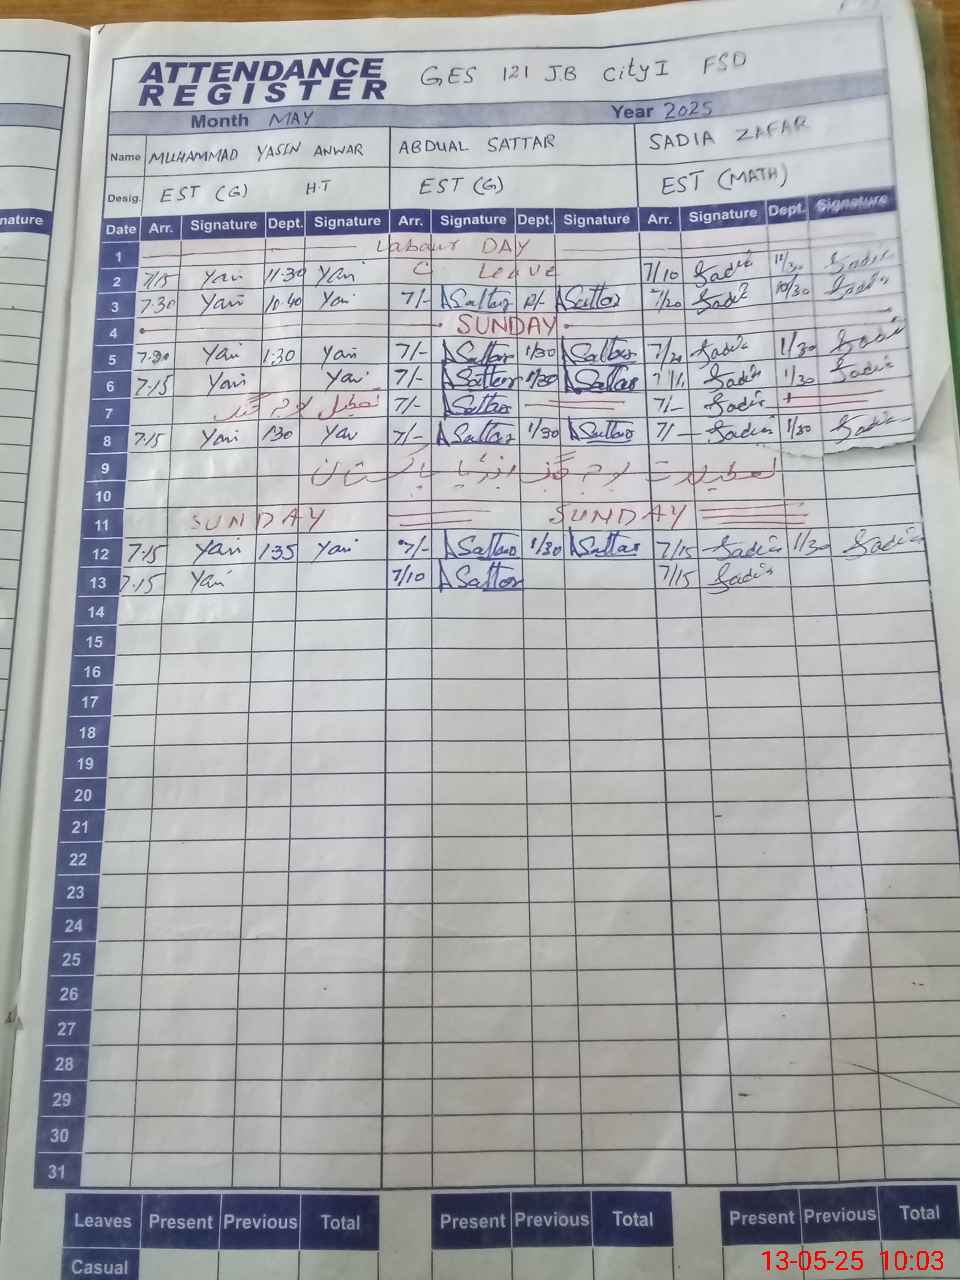 ATTENDANCE REGISTER GES 121 JB City I FSD
Month MAY Year 2025
Name MUHAMMAD YASIN ANWAR ABDUAL SATTAR SADIA ZAFAR
Desig. EST (G) H.T EST (G) EST (MATH)
Date Arr. Signature Dept. Signature Arr. Signature Dept. Signature Arr. Signature Dept. Signature
1 Labour DAY
2 7/15 Yasi 11.30 Yasi C Leave 7/10 Sadia 11/30 Sadia
3 7.30 Yasi 10.40 Yasi 7/- ASattar ASattar 7/20 Sadia 10/30 Sadia
4 SUNDAY
5 7.30 Yasi 1.30 Yasi 7/- ASattar 1/30 ASattar Sadia 1/30 Sadia
6 7.15 Yasi Yasi 7/- ASattar 1/30 ASattar Sadia 1/30 Sadia
7 تعطیل بوجہ جنگ 7/- ASattar 7/- Sadia
8 7.15 Yasi 1.30 Yasi 7/- ASattar 1/30 ASattar 7/- Sadia 1/30 Sadia
9 تعطیلات بوجہ جنگ انڈیا پاکستان
10
11 SUNDAY SUNDAY
12 7.15 Yasi 1.35 Yasi 7/- ASattar 1/30 ASattar 7/15 Sadia 1/30 Sadia
13 7.15 Yasi 7/10 ASattar 7/15 Sadia
14
15
16
17
18
19
20
21
22
23
24
25
26
27
28
29
30
31
Leaves Present Previous Total Present Previous Total Present Previous Total
Casual
13-05-25 10:03